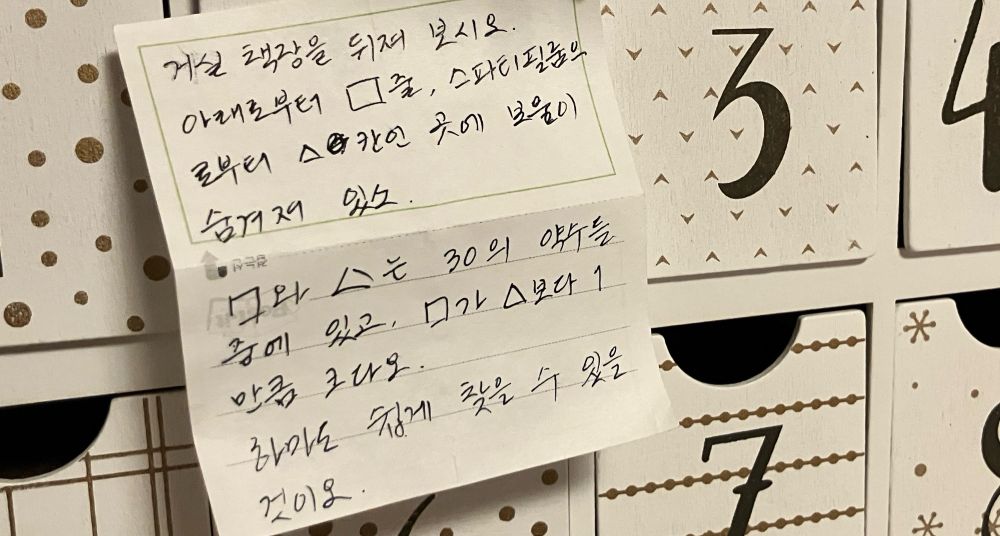 거실 책장을 뒤져 보시오.
아래로부터 □줄, 스파티필름으
로부터 △ 칸인 곳에 보물이
숨겨져 있소.
□와 △는 30의 약수들
중에 있고, □가 △보다 1
만큼 크다오.
아마도 쉽게 찾을 수 있을
것이오.
3
4
7
8